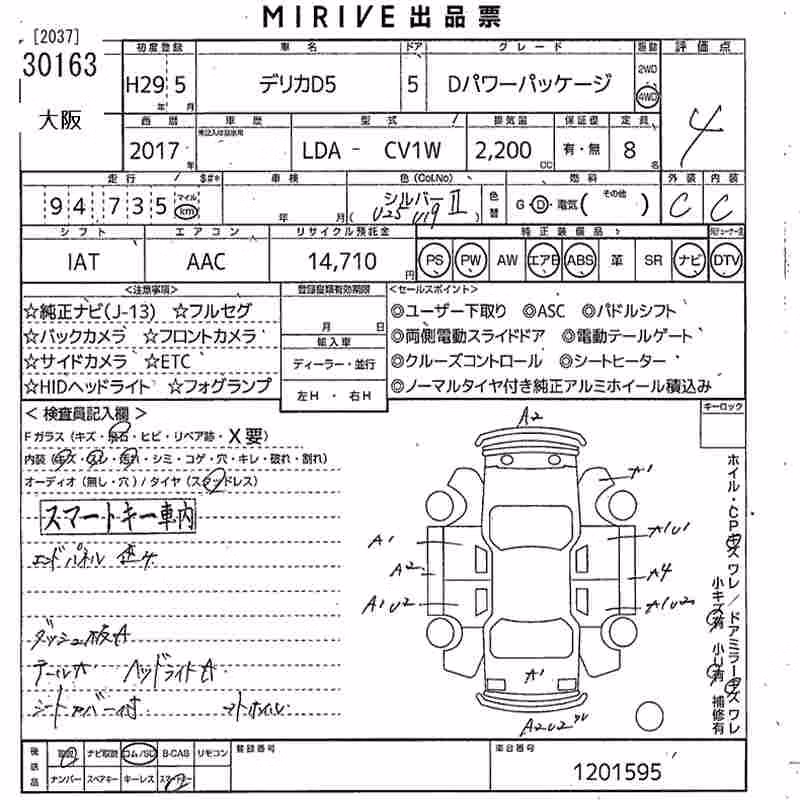 MIRIVE出品票
[2037]
30163
大阪
初度登録 車名 ドア グレード 駆動 評価点
H29 5 デリカD5 5 Dパワーパッケージ 2WD 4WD 4
年 月
西暦 車歴 型式 排気量 保証書 定員
2017 年 LDA - CV1W 2,200 CC 有・無 8 名
走行 $#* 車検 色(Col.No) 燃料 外装 内装
94,735 マイル km 年 月( シルバーII U25 U19 ) 色替 G・D・電気( その他 ) C C
シフト エアコン リサイクル預託金 純正装備品
IAT AAC 14,710 円 PS PW AW エアB ABS 革 SR ナビ DTV
<注意事項> 登録座類有効期限 <セールスポイント>
☆純正ナビ(J-13) ☆フルセグ ◎ユーザー下取り ◎ASC ◎パドルシフト
☆バックカメラ ☆フロントカメラ 月 日 ◎両側電動スライドドア ◎電動テールゲート
輸入車
☆サイドカメラ ☆ETC ディーラー・並行 ◎クルーズコントロール ◎シートヒーター
☆HIDヘッドライト ☆フォグランプ 左H ・ 右H ◎ノーマルタイヤ付き純正アルミホイール積込み
<検査員記入欄> キーロック
Fガラス(キズ・飛石・ヒビ・リペア跡・X要)
内装(キズ・スレ・汚れ・シミ・コゲ・穴・キレ・破れ・割れ)
オーディオ(無し・穴)/タイヤ(スタッドレス)
スマートキー車内
エンドパネル
ダッシュ板A
テールA ヘッドライトA
A2
A1
A1 A1U1
A2 A4
A1U2 A1U2
A1
A2U2
ホイル・CPキズワレ/ドアミラーキズワレ
小キズ有 小U有 補修有
後送品 取説 ナビ取説 ロム/SD B-CAS リモコン 登録番号 車台番号
ナンバー スペアキー キーレス 1201595